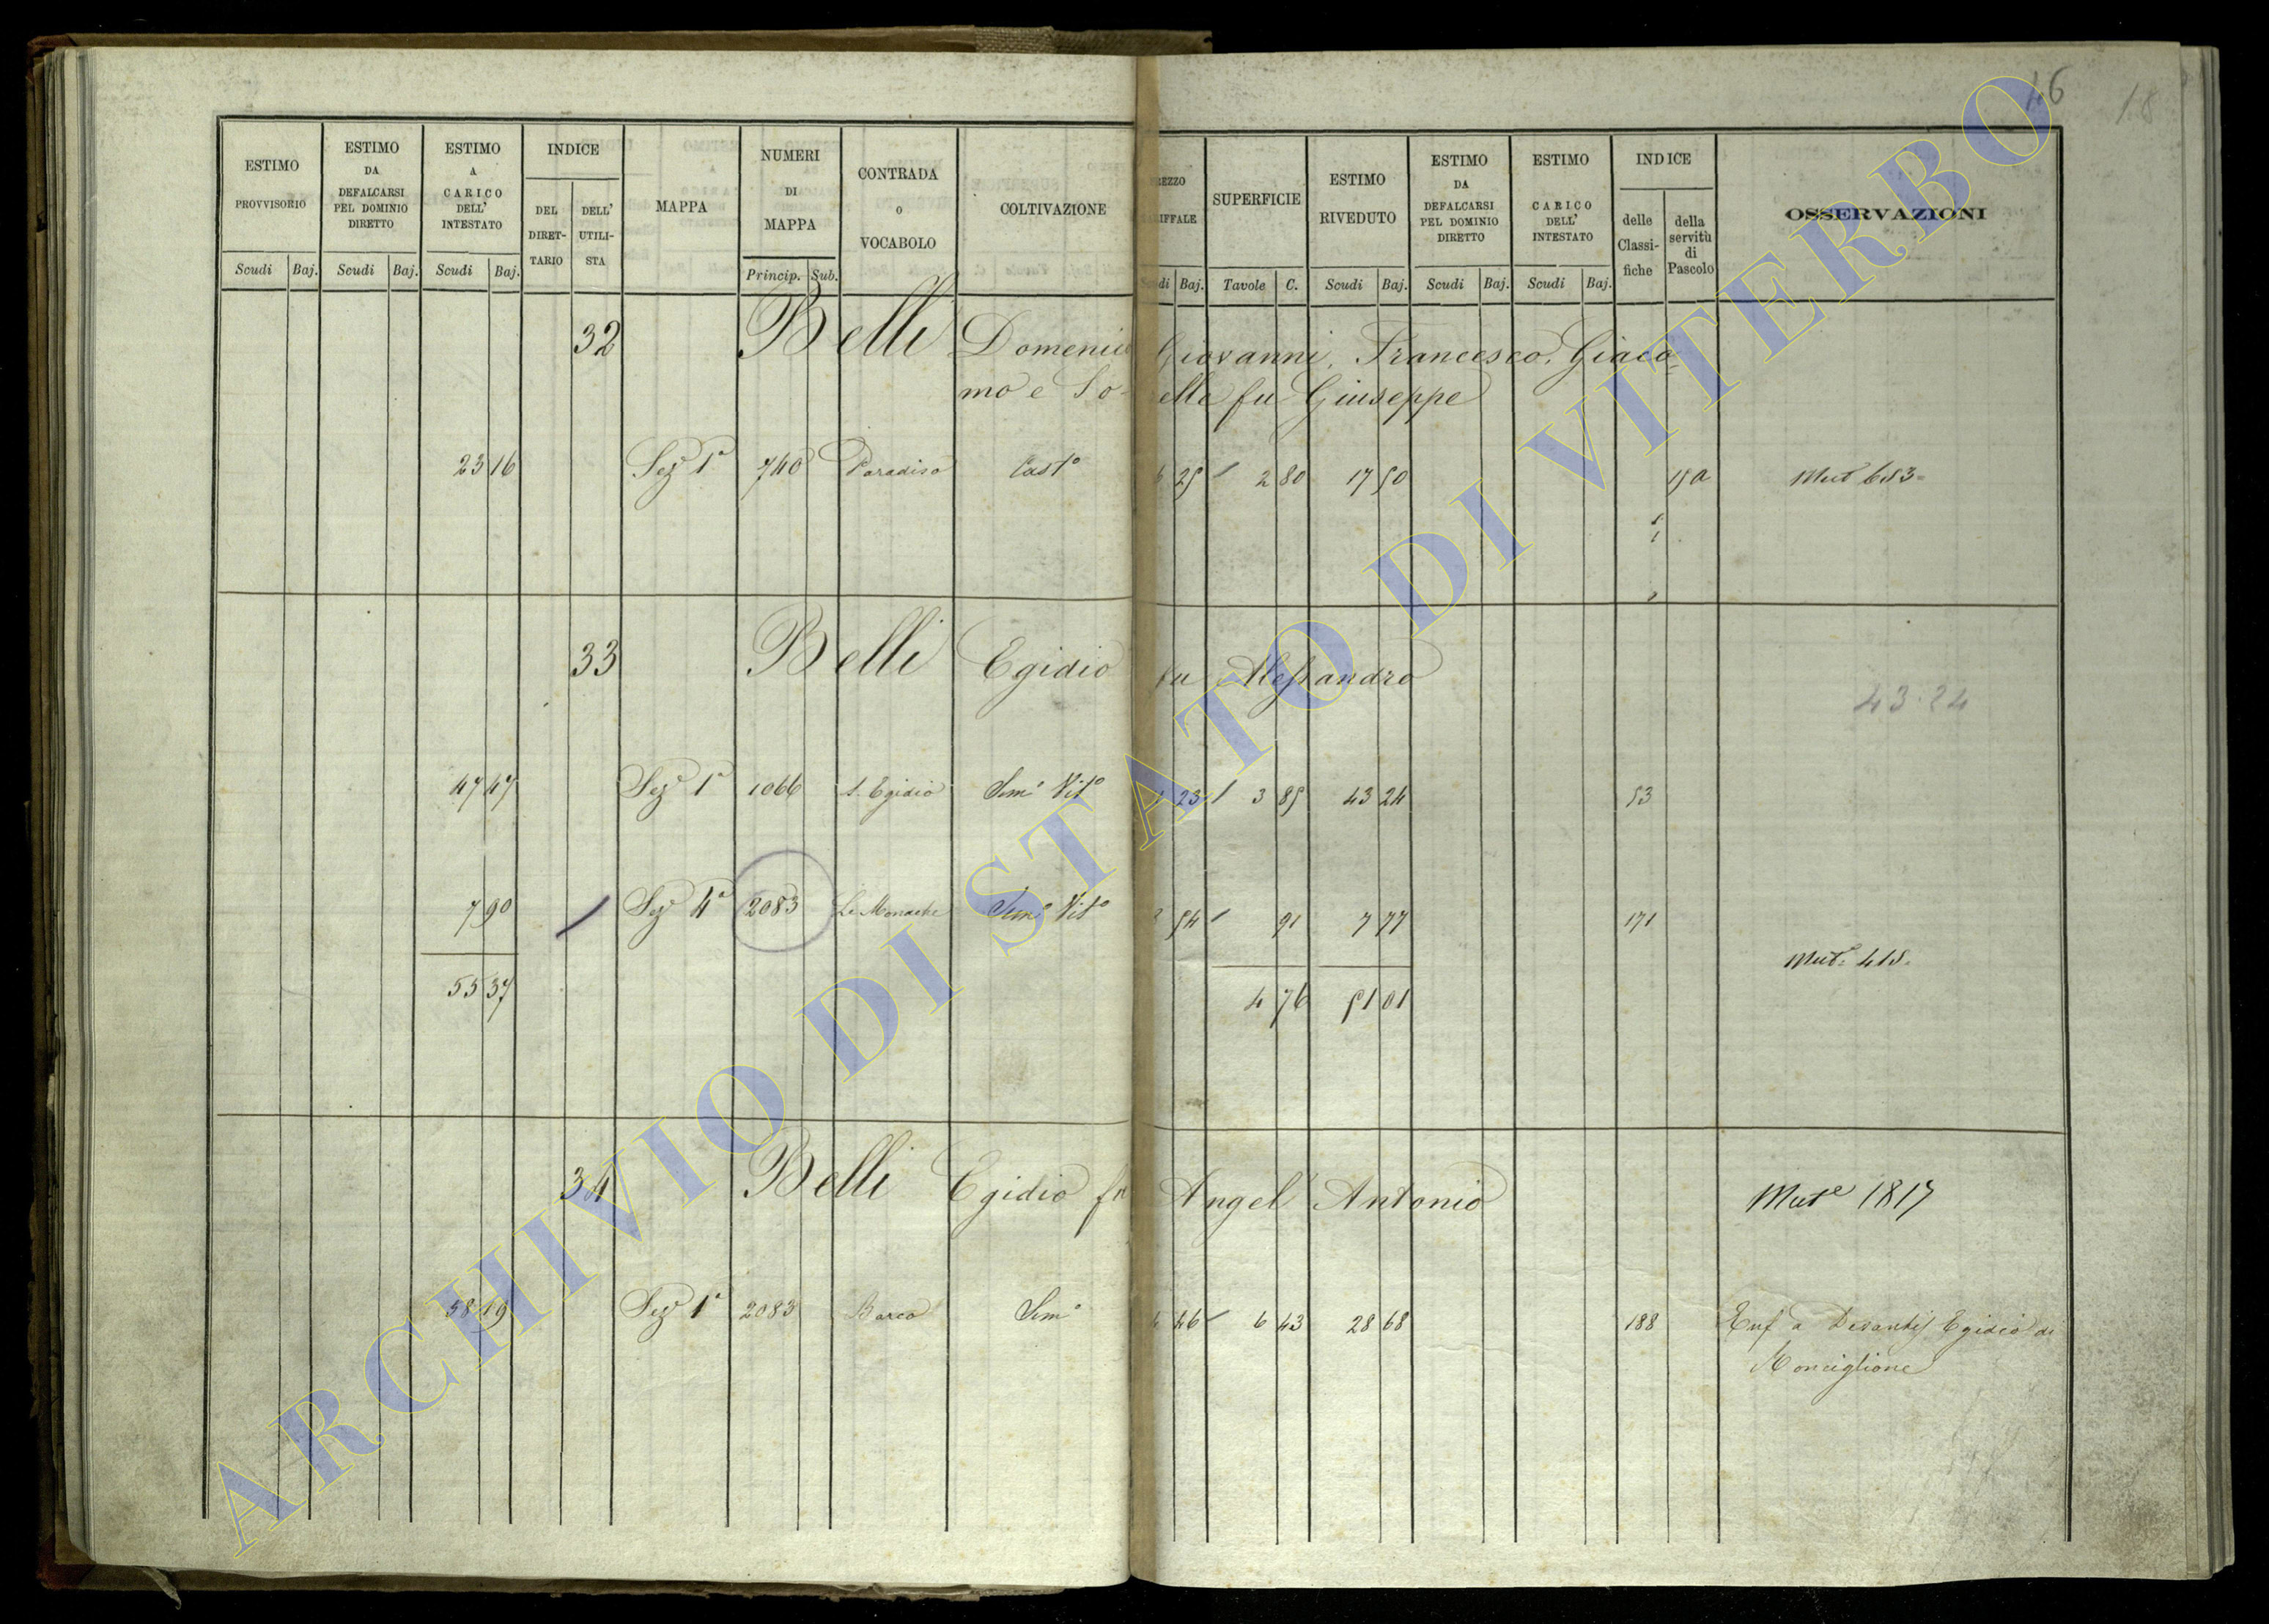 16
18
ESTIMO PROVVISORIO
ESTIMO DA DEFALCARSI PEL DOMINIO DIRETTO
ESTIMO A CARICO DELL' INTESTATO
INDICE
DEL DIRET-TARIO
DELL' UTILI-STA
MAPPA
NUMERI DI MAPPA
CONTRADA o VOCABOLO
COLTIVAZIONE
SUPERFICIE
ESTIMO RIVEDUTO
ESTIMO DA DEFALCARSI PEL DOMINIO DIRETTO
ESTIMO A CARICO DELL' INTESTATO
INDICE
delle Classi-fiche
della servitù di Pascolo
OSSERVAZIONI
Scudi Baj. Scudi Baj. Scudi Baj. Princip. Sub. Baj. Tavole C. Scudi Baj. Scudi Baj. Scudi Baj.
32 Belli Domenico Giovanni, Francesco, Giaco-
mo e So- elle fu Giuseppe
23 16 Sez.e 1a 740 Paradiso Cast.o 25 2 80 17 50 150 Mut 653
33 Belli Egidio fu Alessandro
43.24
47 47 Sez.e 1a 1066 S. Egidio Sem.o Vit.o 23 3 85 43 24 53
7 90 Sez.e 4a 2083 Le Monache Sem.o Vit.o 54 91 7 77 171
Mut. 415
55 37 4 76 51 01
34 Belli Egidio fu Angel'Antonio Mut.e 1817
58 19 Sez.e 1a 2083 Barco Sem.o 46 6 43 28 68 188 Enf a Desantis Egidio di
Ronciglione
ARCHIVIO DI STATO DI VITERBO